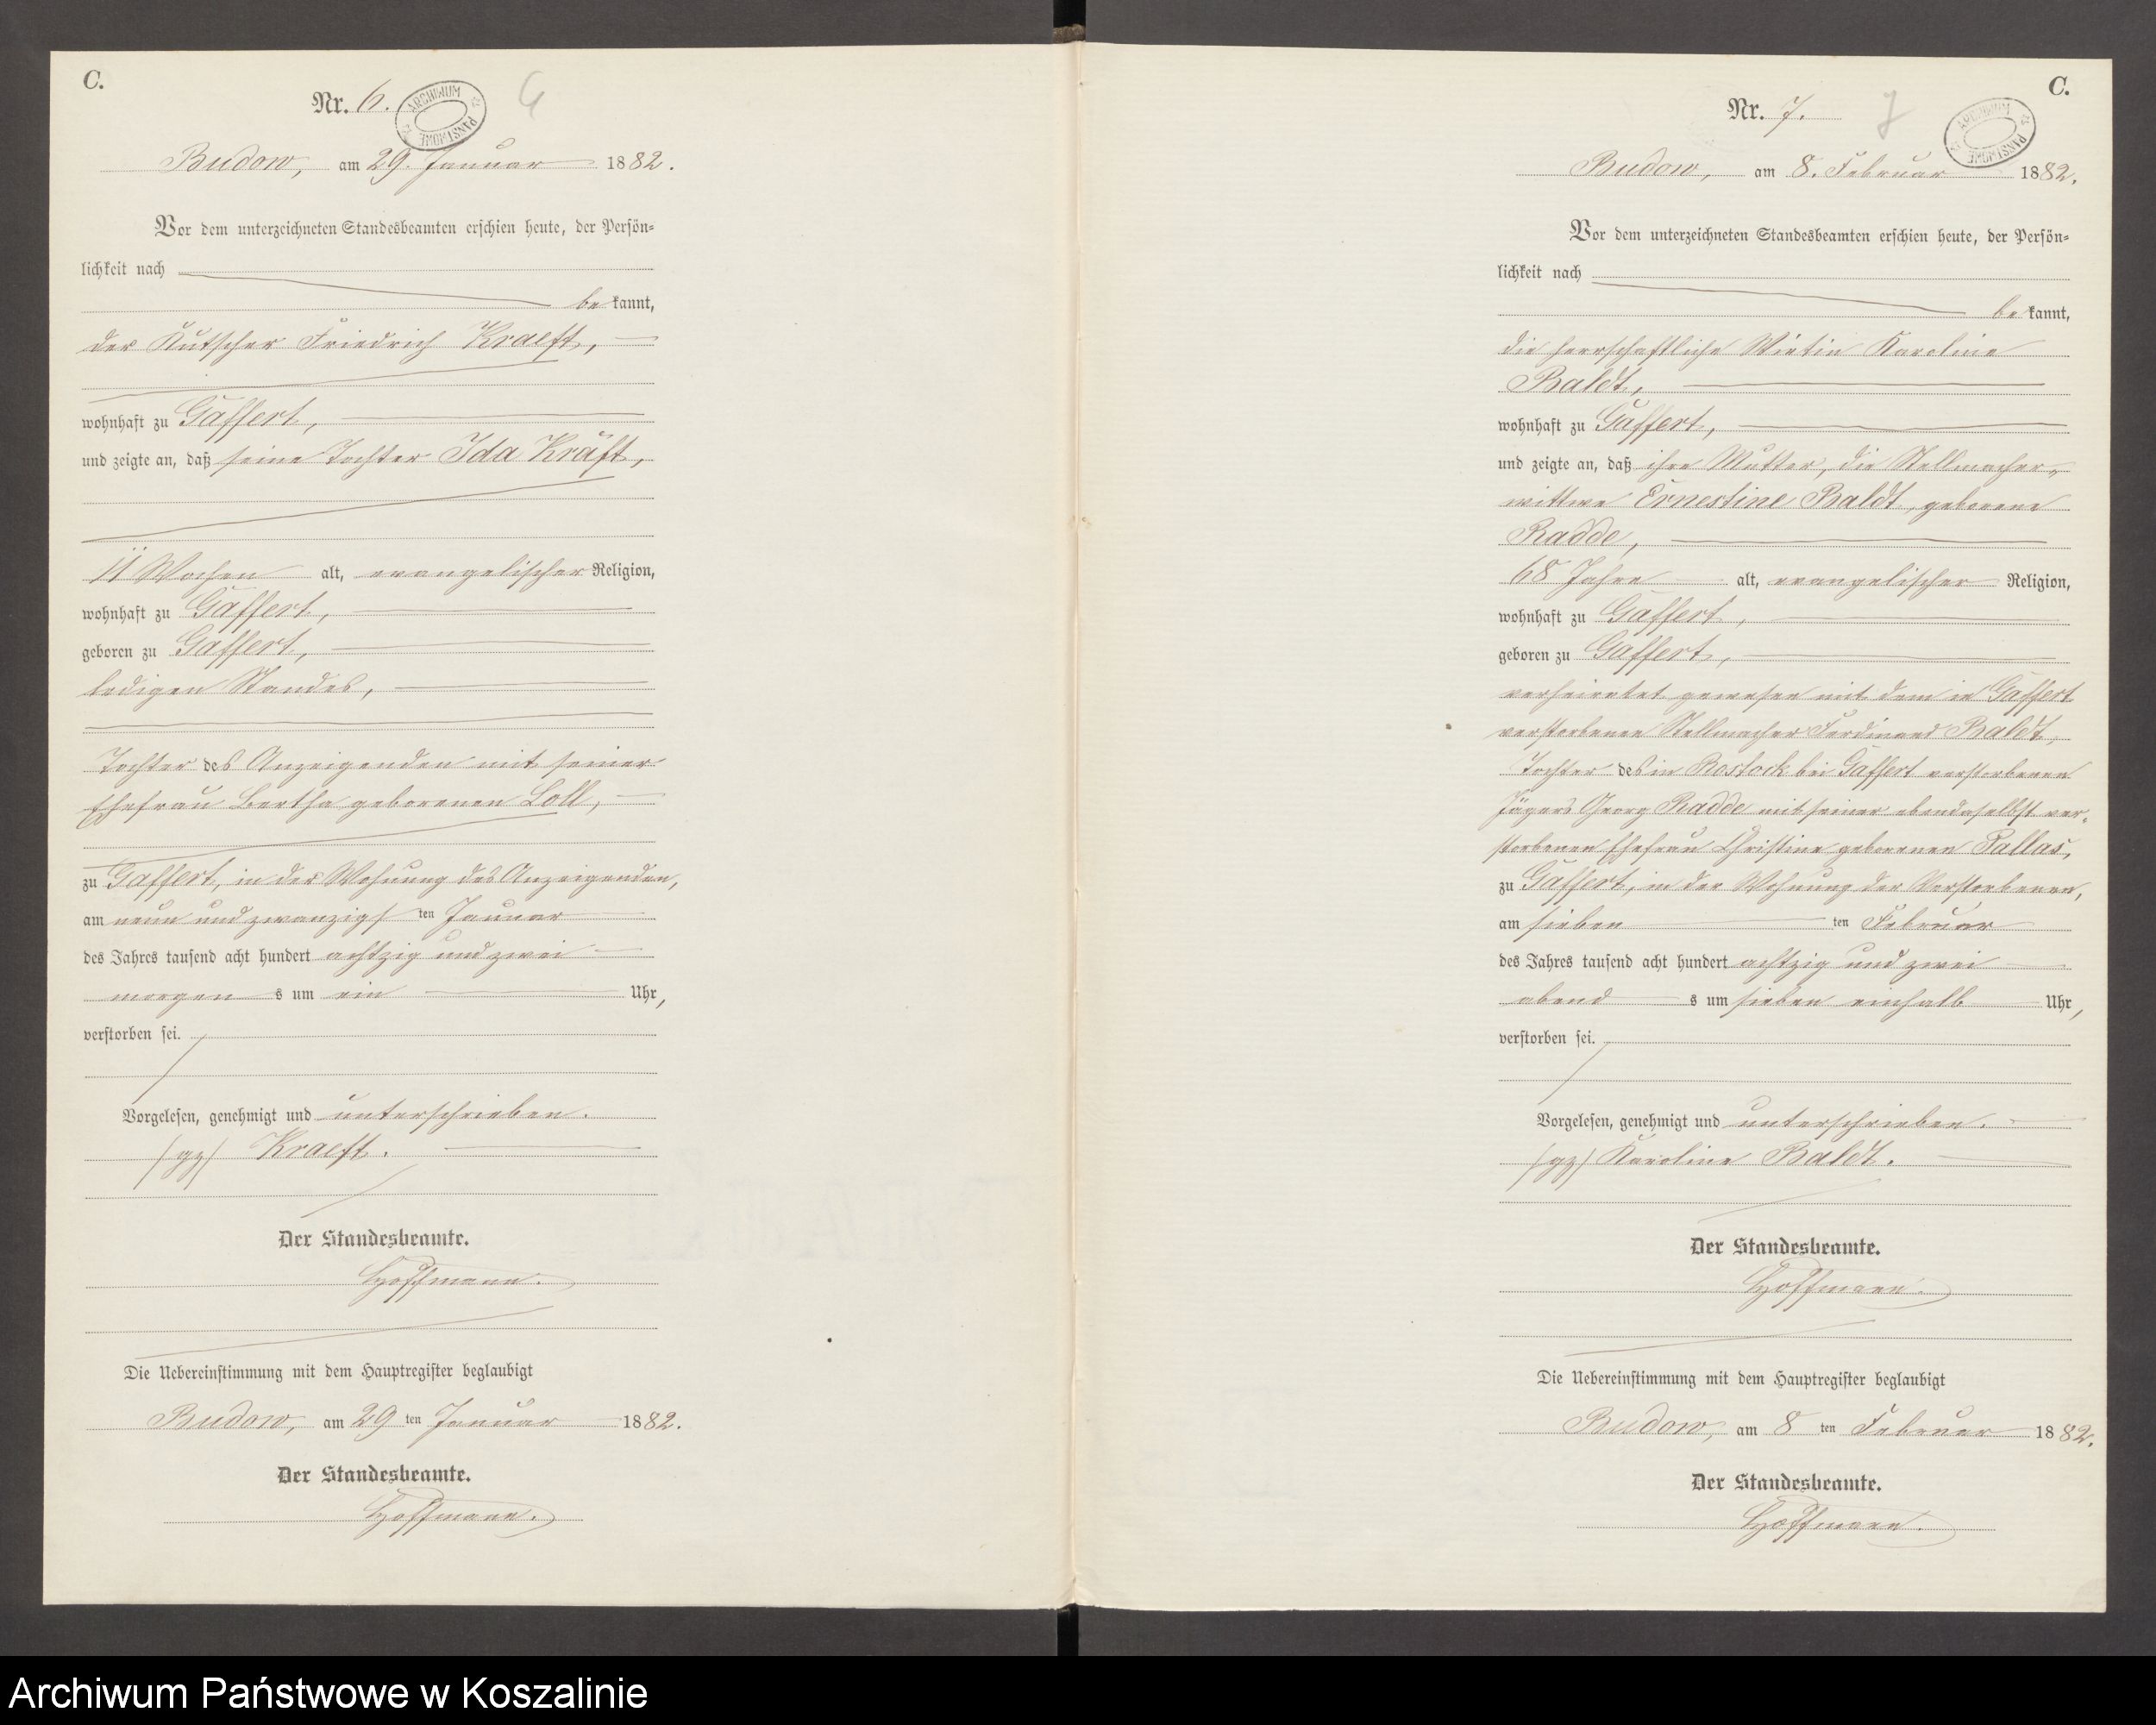 C.
Nr. 6.
6
ARCHIWUM PAŃSTWOWE
Budow, am 29. Januar 1882.
Vor dem unterzeichneten Standesbeamten erschien heute, der Persön=
lichkeit nach
bekannt,
der Kutscher Friedrich Kraeft,
wohnhaft zu Gaffert,
und zeigte an, daß seine Tochter Ida Kräft,
11 Wochen alt, evangelischer Religion,
wohnhaft zu Gaffert,
geboren zu Gaffert,
ledigen Standes,
Tochter des Anzeigenden mit seiner
Ehefrau Bertha geborenen Loll,
zu Gaffert, in der Wohnung des Anzeigenden,
am neun und zwanzigsten Januar
des Jahres tausend acht hundert achtzig und zwei
morgens um ein Uhr,
verstorben sei.
Vorgelesen, genehmigt und unterschrieben.
(gz) Kraeft.
Der Standesbeamte.
Hoffmann.
Die Uebereinstimmung mit dem Hauptregister beglaubigt
Budow, am 29ten Januar 1882.
Der Standesbeamte.
Hoffmann.
C.
Nr. 7.
7
ARCHIWUM PAŃSTWOWE
Budow, am 8. Februar 1882.
Vor dem unterzeichneten Standesbeamten erschien heute, der Persön=
lichkeit nach
bekannt,
die herrschaftliche Wirtin Karoline
Baldt,
wohnhaft zu Gaffert,
und zeigte an, daß ihre Mutter, die Stellmacher-
wittwe Ernestine Baldt, geborene
Radde,
68 Jahre alt, evangelischer Religion,
wohnhaft zu Gaffert,
geboren zu Gaffert,
verheiratet gewesen mit dem in Gaffert
verstorbenen Stellmacher Ferdinand Baldt,
Tochter des in Rostock bei Gaffert verstorbenen
Jägers Georg Radde mit seiner ebendaselbst ver-
storbenen Ehefrau Christine geborenen Pallas,
zu Gaffert, in der Wohnung der Verstorbenen,
am siebenten Februar
des Jahres tausend acht hundert achtzig und zwei
abends um sieben einhalb Uhr,
verstorben sei.
Vorgelesen, genehmigt und unterschrieben.
(gz) Karoline Baldt.
Der Standesbeamte.
Hoffmann.
Die Uebereinstimmung mit dem Hauptregister beglaubigt
Budow, am 8ten Februar 1882.
Der Standesbeamte.
Hoffmann.
Archiwum Państwowe w Koszalinie